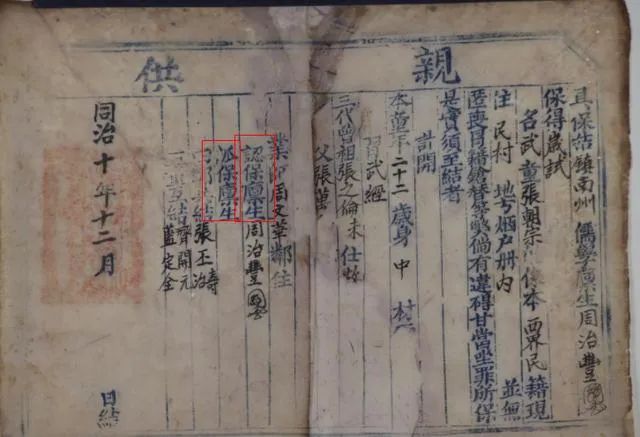 親供
具保結鎮南州儒學廩生周治豐
保得歲試
名武童張朝宗係本西界民籍現
住民村地方烟户册内並無
匿喪冒籍鎗替等弊倘有違碍甘當坐罪所保
是實須至結者
計開
本童年二十二歲身中材
習武經
三代曾祖張之倫未仕故
父張萬
業師周文華鄰佑
認保廩生周治豐
派保廩生
張丕
齊開元
藍定全
同治十年十二月日結